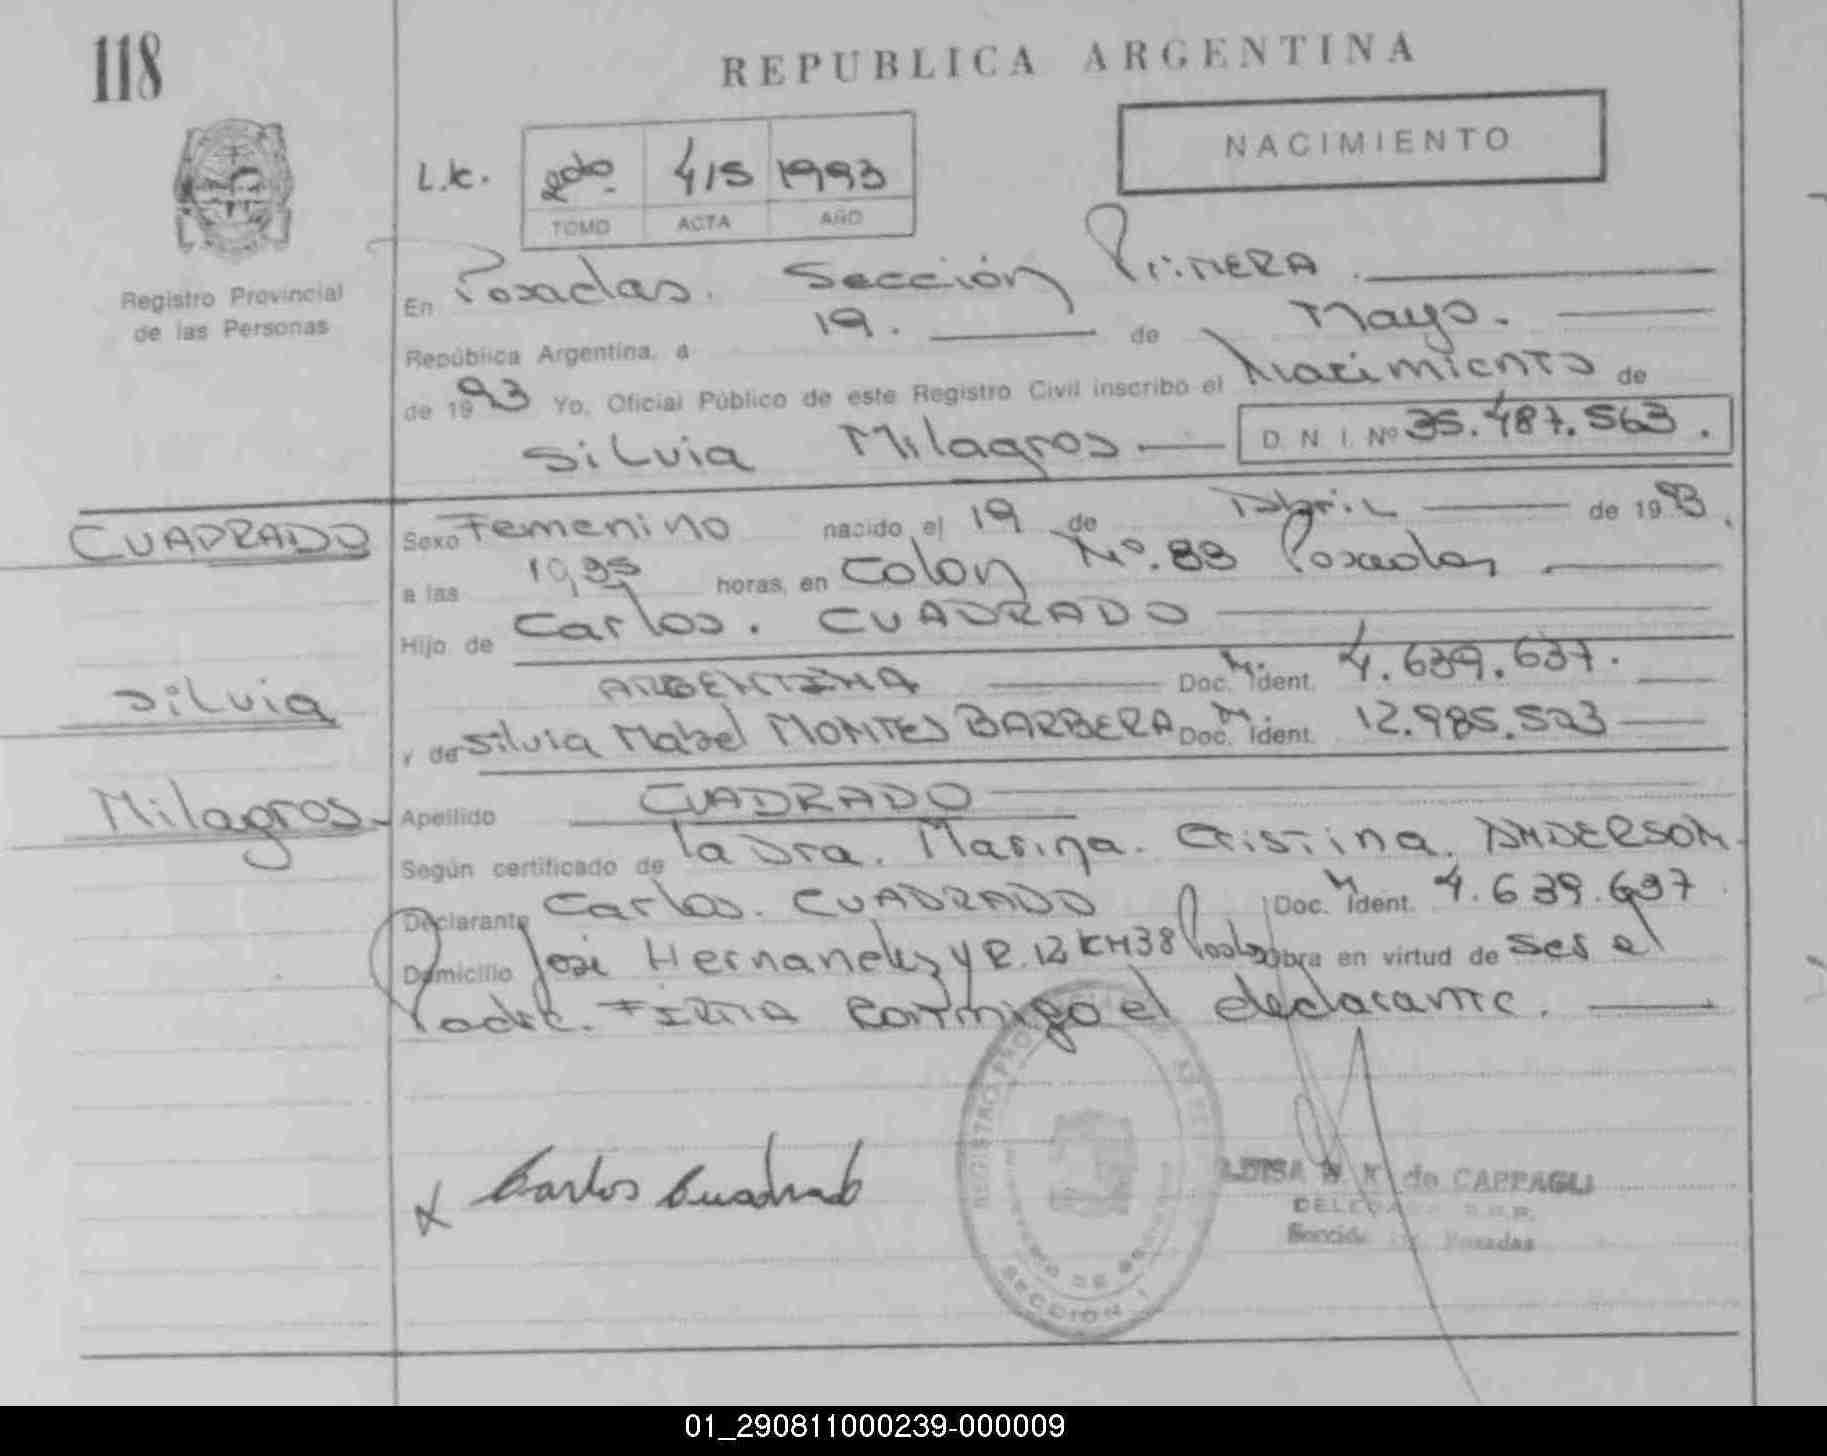 118
REPUBLICA ARGENTINA
NACIMIENTO
L.c. 2do. 415 1993
TOMO ACTA AÑO
Registro Provincial
de las Personas
En Posadas. Sección Primera.
República Argentina, a 19. de Mayo.
de 1993 Yo, Oficial Público de este Registro Civil inscribo el Nacimiento de
Silvia Milagros D N I. Nº 35.487.563.
CUADRADO
Silvia
Milagros
Sexo Femenino nacido el 19 de Abril de 1993.
a las 19,35 horas, en Colon Nº. 83 Posadas
Hijo de Carlos. CUADRADO
ARGENTINA Doc. M. Ident. 4.639.637.
y de Silvia Mabel MONTES BARBERA Doc. M. Ident. 12.985.523
Apellido CUADRADO
Según certificado de la Dra. Marina. Cristina. ANDERSON
Declarante Carlos. CUADRADO Doc. M. Ident. 4.639.637
Domicilio José Hernandez y R. 12 KM 38 Obra en virtud de ser el
Padre. FIRMA conmigo el declarante.
x Carlos Cuadrado
REGISTRO
SECCION 1
LUISA de CAPPAGLI
Posadas
01_290811000239-000009